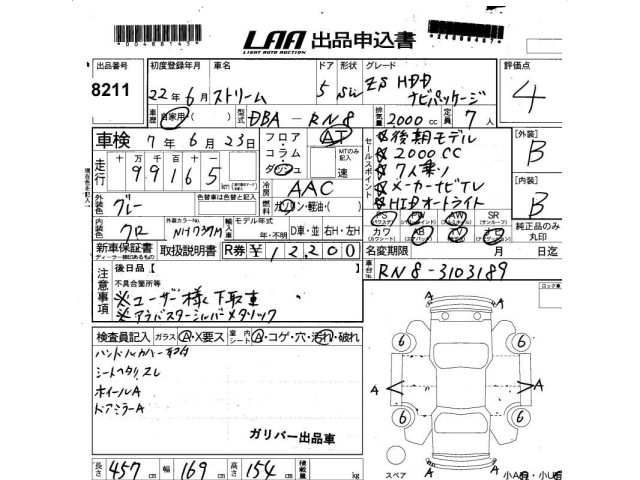 00488145
LAA 出品申込書
LIGHT AUTO AUCTION
出品番号 初度登録年月 車名 ドア 形状 グレード 評価点
8211 22年6月 ストリーム 5 ZS HDD ナビパッケージ 4
車歴 自家用( ) 型式 DBA-RN8 排気量 2000cc 定員 7人
車検 7年6月23日 フロア・コラム・ダッシュ AT MTのみ記入 速
セールスポイント
☆後期モデル
☆2000CC
☆7人乗り
☆メーカーナビTV
☆HIDオートライト
[外装] B
[内装] B
純正品のみ丸印
走行 十万 万 千 百 十
99165 km
現在色を記入
外装色 グレー 色替車は色替と記入
冷房 AAC
燃料 ガソリン・軽油・( )
内装色 クロ 外装カラーNo. NH737M 輸入車 年モデル 年・不明 D車・並 右H・左H
PS PW AW SR
(パワステ) (パワーウインド) (アルミホイール) (サンルーフ)
カワ AB TV ナビ
(カワシート) (エアバッグ)
新車保証書 取扱説明書 R券 ¥12,200
ディーラー捺印あるもの
名変期限 月 日迄
車台No. RN8-3103189
注意事項
後日品[ ]
不具合箇所等
※ユーザー様下取車
※アラバスターシルバーメタリック
検査員記入 ガラス A・X要ス 室内シート A・コゲ・穴・汚れ・破れ
ハンドルカバー取付
シートヘタリスレ
ホイールA
ドアミラーA
ガリバー出品車
長さ 457cm 幅 169cm 高さ 154cm 積載量 kg
ロック車
A A
6 6
A A
6 6
A A
スペア